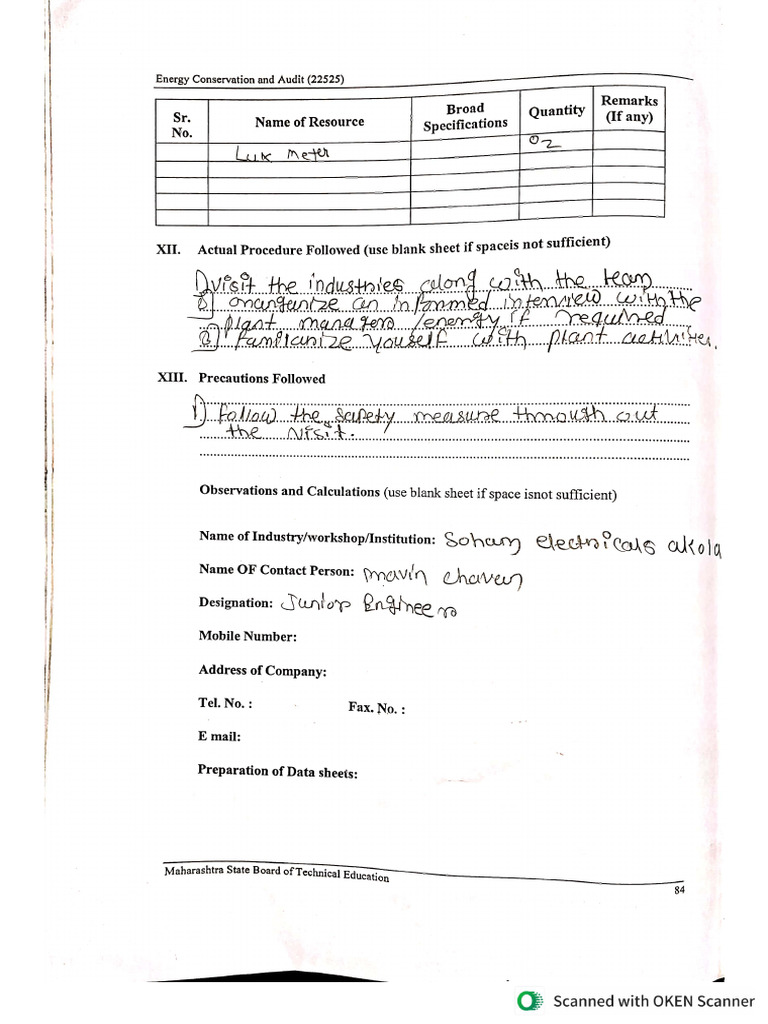 Energy Conservation and Audit (22525)
Sr. No. Name of Resource Broad Specifications Quantity Remarks (If any)
Lux meter 02
XII. Actual Procedure Followed (use blank sheet if spaceis not sufficient)
1) visit the industries along with the team
2) onarganize an informed interview with the
plant managers /energy if required
3) Familianize youself with plant activities.
XIII. Precautions Followed
1) Follow the safety measure through out
the visit.
Observations and Calculations (use blank sheet if space isnot sufficient)
Name of Industry/workshop/Institution: Soham electricals akola
Name OF Contact Person: mavin chaven
Designation: Junior Engineer
Mobile Number:
Address of Company:
Tel. No. : Fax. No. :
E mail:
Preparation of Data sheets:
Maharashtra State Board of Technical Education
84
Scanned with OKEN Scanner